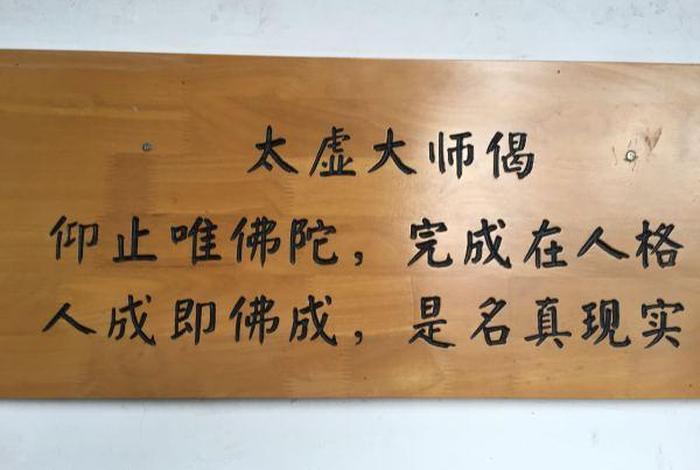 太虚大师偈
仰止唯佛陀，完成在人格
人成即佛成，是名真现实